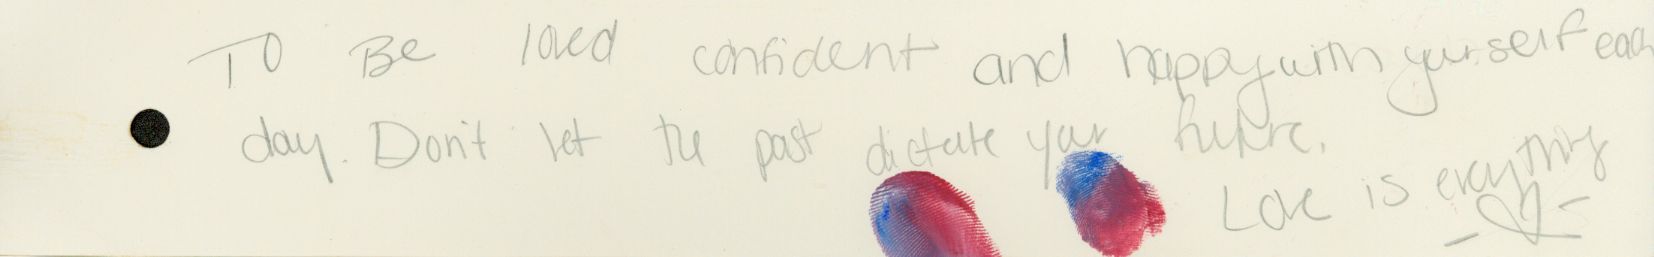 To Be loved confident and happy with yourself each
day. Don't let the past dictate your future.
Love is everything